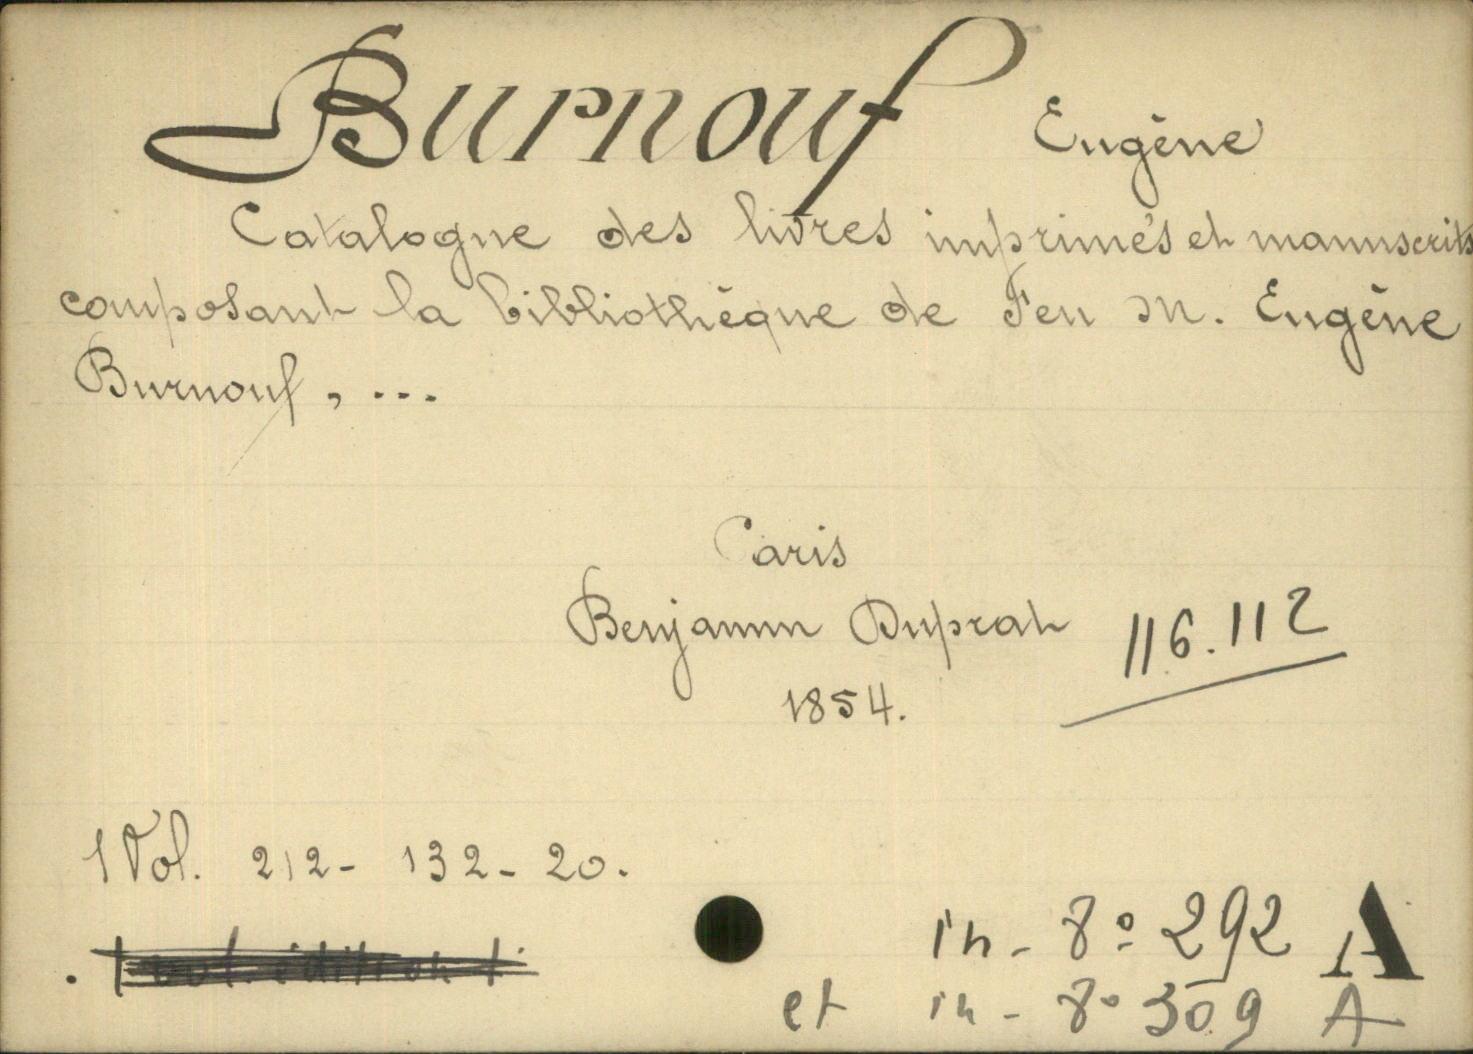 Burnouf Eugène
Catalogue des livres imprimés et manuscrits
composant la bibliothèque de Feu M. Eugène
Burnouf, ...
Paris
Benjamin Duprat 116.112
1854.
1 Vol. 212- 132- 20.
in-8° 292 A
et in-8° 309 A